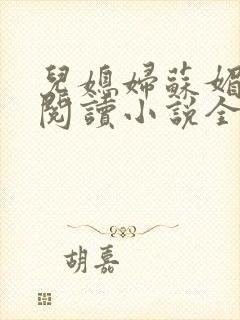 兒媳婦蘇媚
閱讀小說全
胡嘉